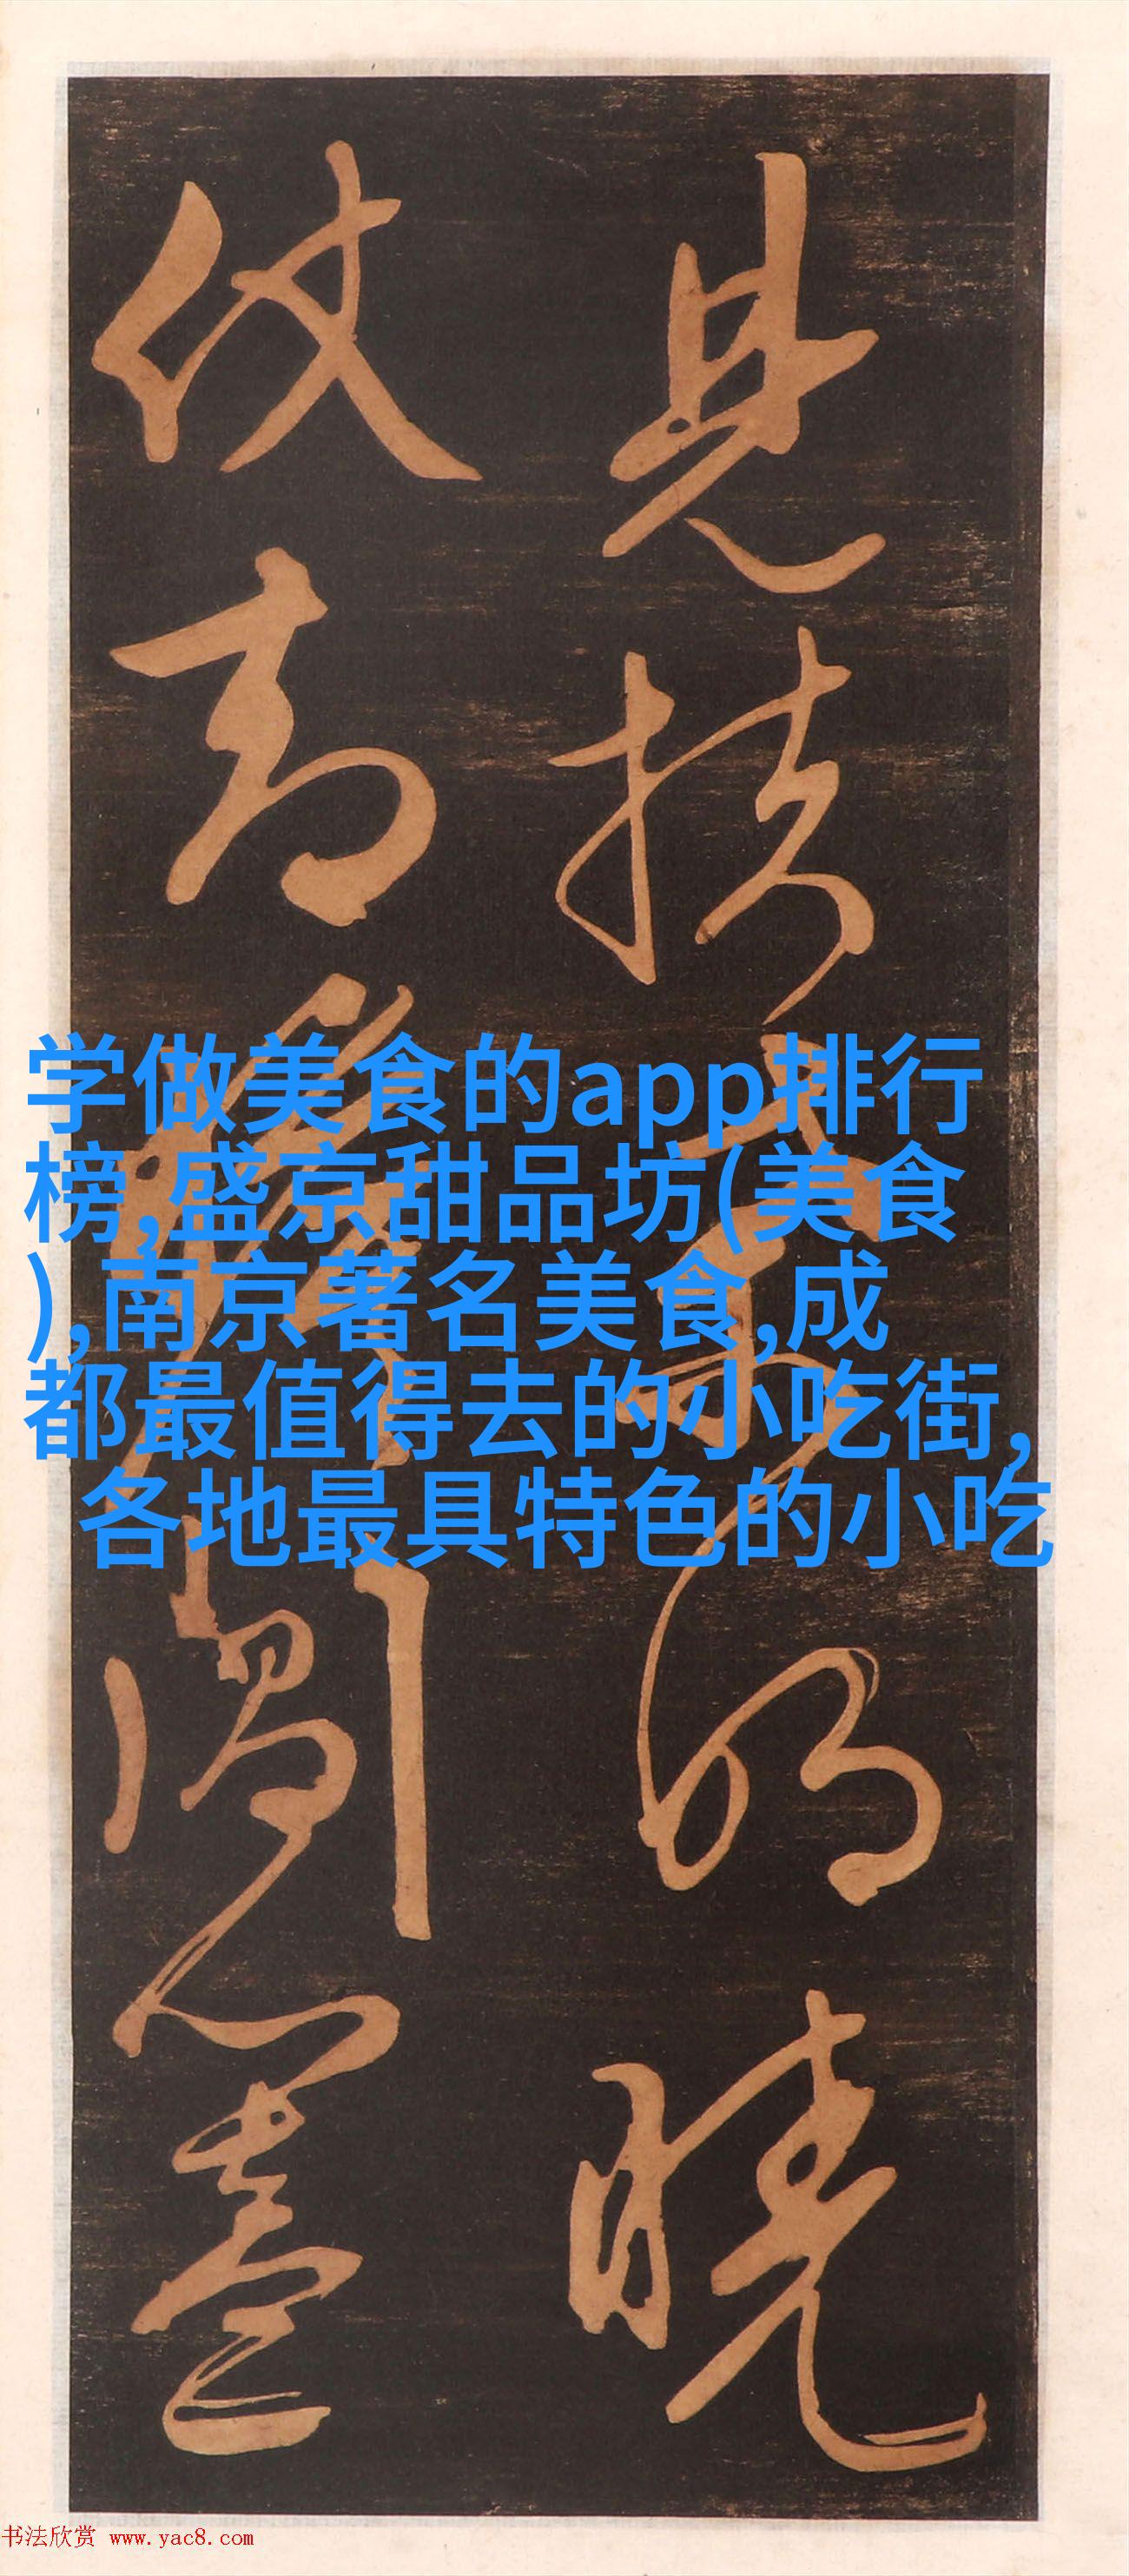 見扶曉
仗
学做美食的app排行
榜,盛京甜品坊(美食
),南京著名美食,成
都最值得去的小吃街,
各地最具特色的小吃
书法欣赏 www.yac8.com